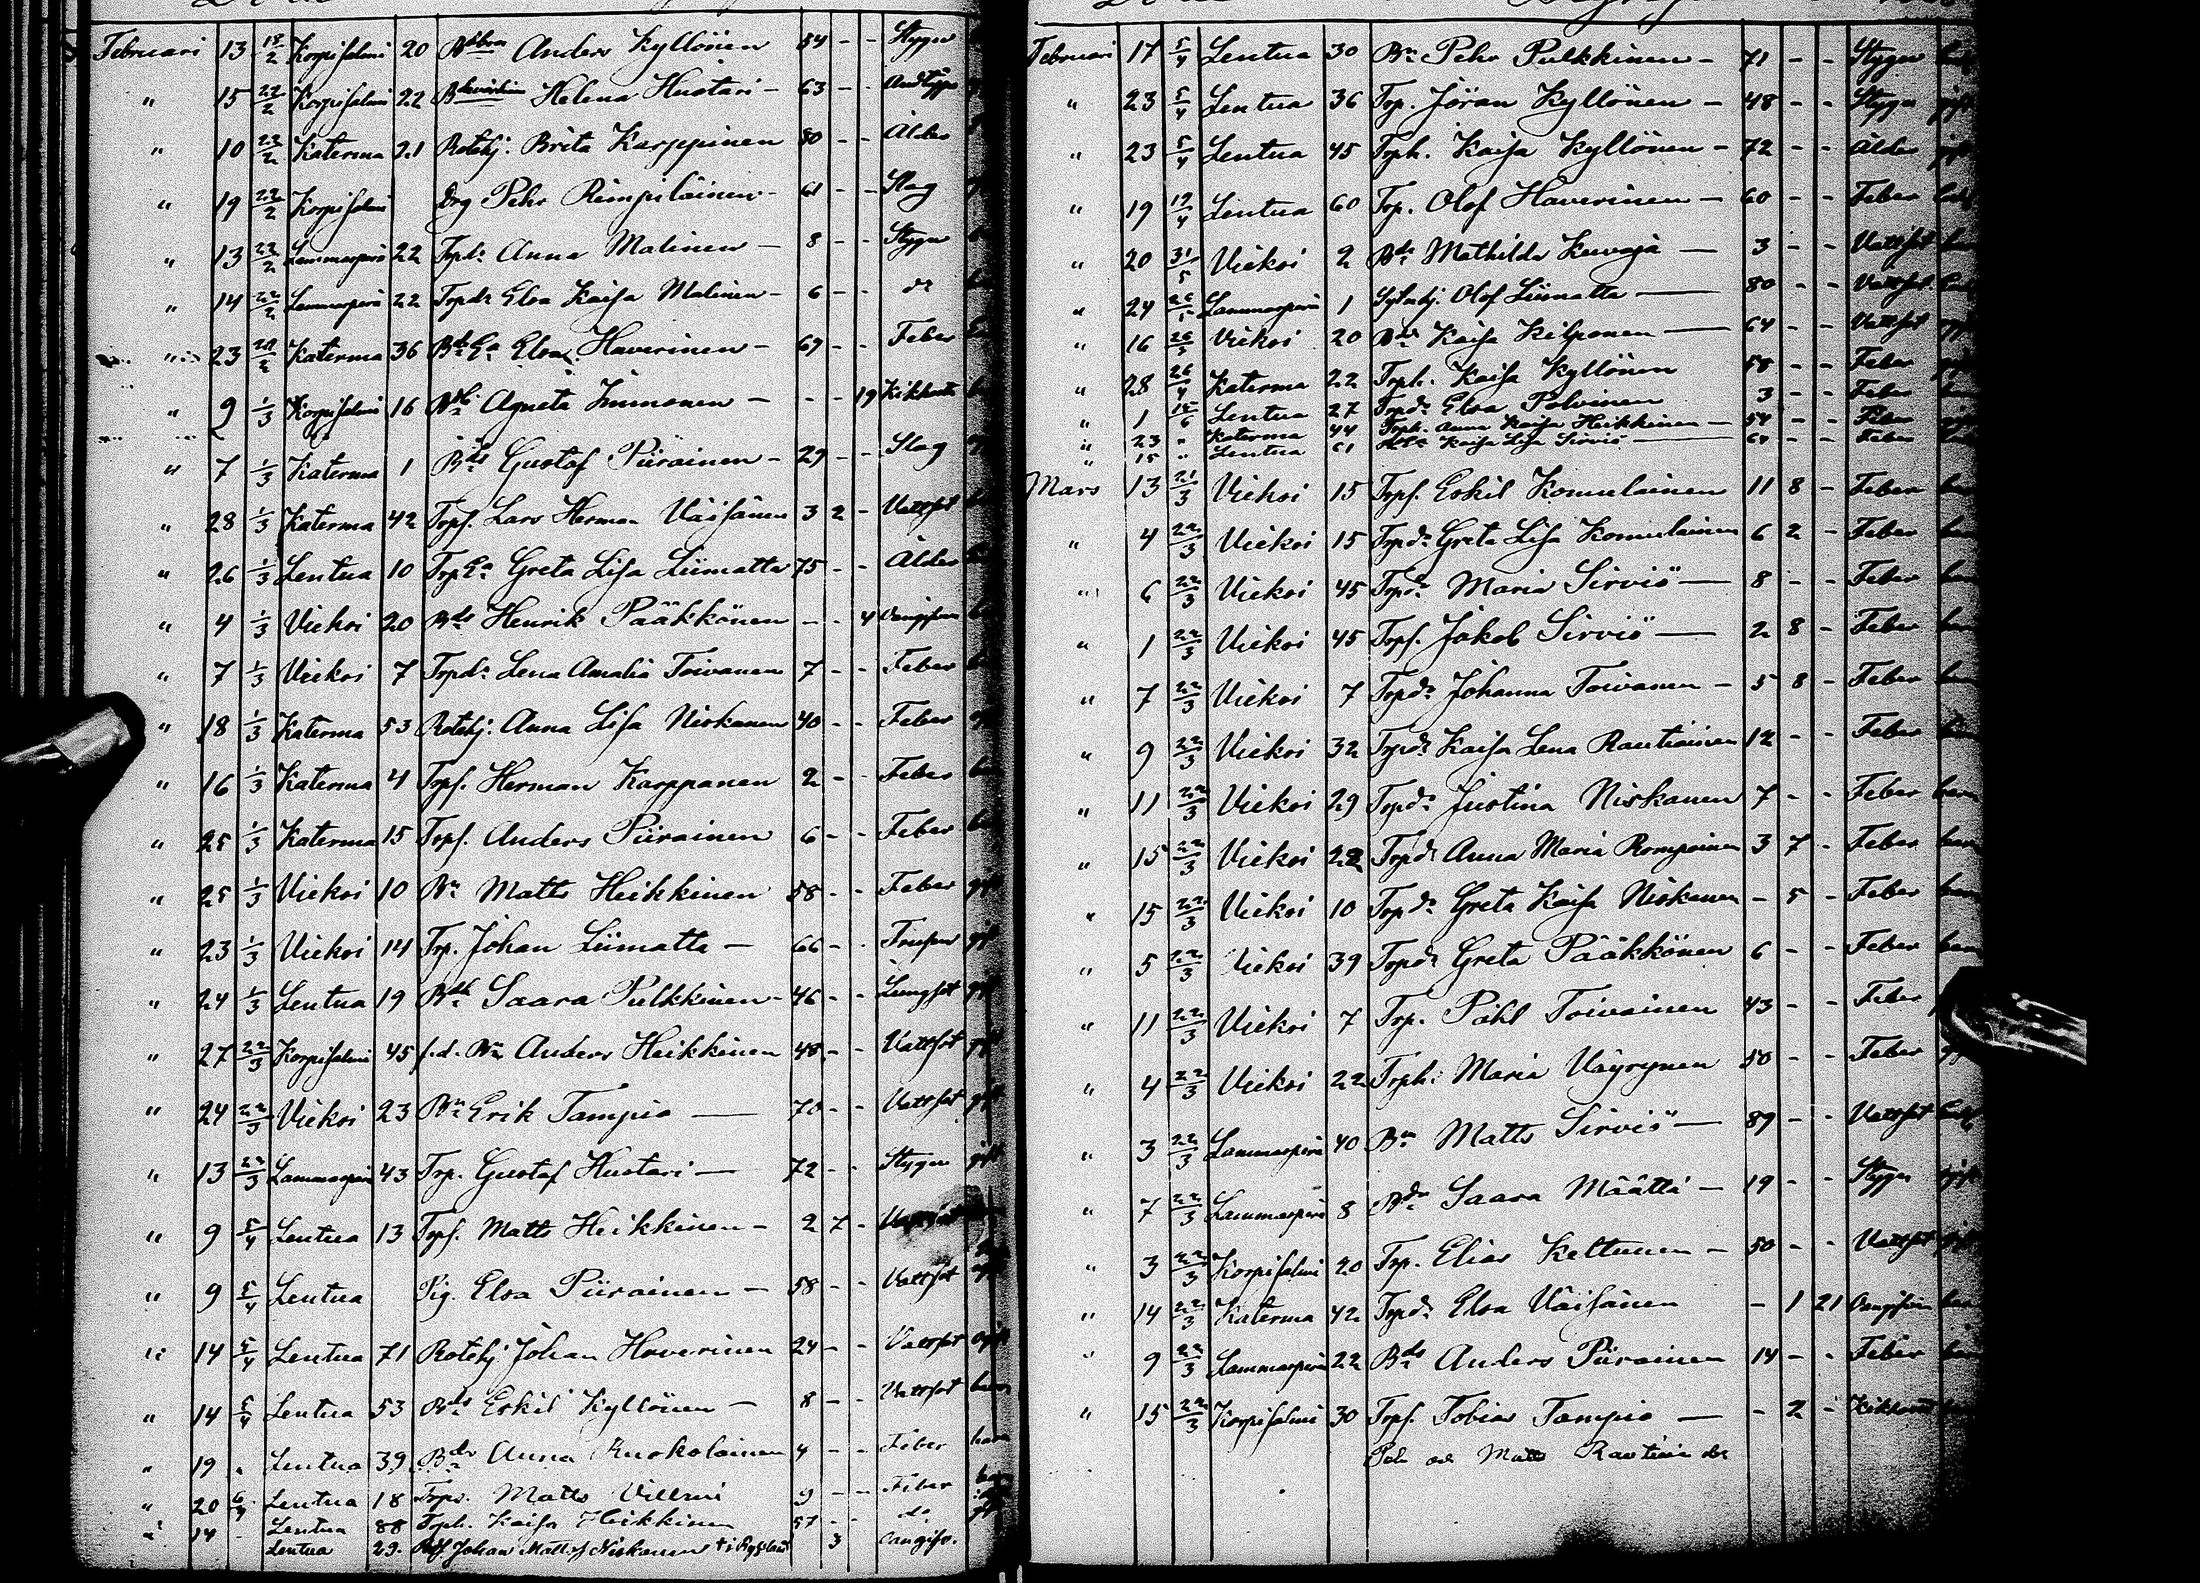 Februari 13 18/2 Korpisalmi 20 Anders Kyllönen 54 - - Stygn
" 15 22/2 Korpisalmi 22 Helena Huotari - 63 - -
" 10 22/2 Katerma 21 Rotehj. Brita Karppinen 80 - - Ålder
" 19 22/2 Korpisalmi Drg Pehr Rimpiläinen - 61 - - Slag
" 13 22/2 Lammasperä 22 Trpdr Anna Malinen - 8 - - Stygn
" 14 22/2 Lammasperä 22 Trpdr Elsa Kaisa Malinen - 6 - - do
23 Katerma 36 Elsa Haverinen - 67 - - Feber
" 9 1/3 Korpisalmi 16 Agneta Immonen - - - 19 Kikhosta
" 7 1/3 Katerma 1 Gustaf Piirainen - 29 - - Slag
" 28 1/3 Katerma 42 Trps. Lars Herman Väisänen 3 2 - Vattsot
" 26 1/3 Lentua 10 Greta Lisa Liimatta 75 - - Ålder
" 4 1/3 Viekoi 20 Bds Henrik Pääkkönen - - 4
" 7 1/3 Viekoi 7 Trpdr Lena Amalia Toivanen 7 - - Feber
" 18 1/3 Katerma 53 Rotehj. Anna Lisa Niskanen 40 - - Feber
" 16 1/3 Katerma 4 Trps. Herman Karppanen 2 - - Feber
" 25 1/3 Katerma 15 Trps. Anders Piirainen 6 - - Feber
" 25 1/3 Viekoi 10 Bn Matts Heikkinen 58 - - Feber gift
" 23 1/3 Viekoi 14 Trp. Johan Liimatta - 66 - - gift
" 24 1/3 Lentua 19 Bdh Saara Pulkkinen - 46 - - Lungsot gift
" 27 22/3 Korpisalmi 45 f.d. Bn Anders Heikkinen 48 - - Vattsot gift
" 24 22/3 Viekoi 23 Bn Erik Tampio - 70 - - Vattsot gift
" 13 22/3 Lammasperä 43 Trp. Gustaf Huotari - 72 - - Stygn gift
" 9 5/4 Lentua 13 Trps. Matts Heikkinen - 2 7 -
" 9 5/4 Lentua Pig. Elsa Piirainen - 58 - - Vattsot
" 14 5/4 Lentua 71 Rotehj Johan Haverinen 24 - - Vattsot ogift
" 14 5/4 Lentua 53 Bds Eskil Kyllönen - 8 - - Vattsot barn
" 19 " Lentua 39 Bdr Anna Ruokolainen 4 - - Feber barn
" 20 Lentua 18 Trps. Matts 9 - - Feber barn
" 14 Lentua 88 Trph. Kaisa Heikkinen 57 - - do
Lentua 29. Johan Matts Niskanen 3
Februari 17 5/4 Lentua 30 Bn Pehr Pulkkinen - 71 - - Stygn
" 23 5/4 Lentua 36 Trp. Jöran Kyllönen - 48 - - Stygn gift
" 23 5/4 Lentua 45 Trph. Kaisa Kyllönen - 72 - - Ålder
" 19 19/4 Lentua 60 Trp. Olof Haverinen - 60 - - Feber
" 20 31/5 Viekoi 2 Bdr Mathilda Kuvaja - 3 - - Vattsot
" 24 Lammasperä 1 Olof Liimatta - 80 - - Vattsot
" 16 Viekoi 20 Kaisa Kilponen - 64 - - Vattsot
" 28 26/4 Katerma 22 Trph. Kaisa Kyllönen 58 - - Feber
" 1 Lentua 27 Trpdr Elsa Polvinen 3 - - Feber
" 23 " Katerma 44 Trph. Anna Kaisa Heikkinen - 54 - - Feber
" 15 " Lentua 61 Kaisa Lisa Sirviö - - - Feber
Mars 13 21/3 Viekoi 15 Trps. Eskil Komulainen 11 8 - Feber
" 4 22/3 Viekoi 15 Trpdr Greta Lisa Komulainen 6 2 - Feber
" 6 22/3 Viekoi 45 Trpdr Maria Sirviö - 8 - - Feber
" 1 22/3 Viekoi 45 Trps. Jakob Sirviö - 2 8 - Feber
" 7 22/3 Viekoi 7 Trpdr Johanna Toivanen - 5 8 - Feber
" 9 22/3 Viekoi 32 Trpdr Kaisa Lena Rautiainen 12 - - Feber
" 11 22/3 Viekoi 29 Trpdr Justina Niskanen 7 - - Feber barn
" 15 22/3 Viekoi 22 Trpdr Anna Maria Romppainen 3 7 - Feber barn
" 15 22/3 Viekoi 10 Trpdr Greta Kaisa Niskanen - 5 - Feber barn
" 5 22/3 Viekoi 39 Trpdr Greta Pääkkönen 6 - - Feber barn
" 11 22/3 Viekoi 7 Trp. Påhl Toivainen 43 - - Feber
" 4 22/3 Viekoi 22 Trph. Maria Väyrynen 50 - - Feber
" 3 22/3 Lammasperä 40 Bn Matts Sirviö - 89 - - Vattsot
" 7 22/3 Lammasperä 8 Bdr Saara Määttä - 19 - - Stygn
" 3 22/3 Korpisalmi 20 Trp. Elias Keltunen - 50 - - Vattsot gift
" 14 22/3 Katerma 42 Trpdr Elsa Väisänen - 1 21
" 9 22/3 Lammasperä 22 Bds Anders Piirainen 14 - - Feber
" 15 22/3 Korpisalmi 30 Trps. Tobias Tampio - - 2 - Kikhosta